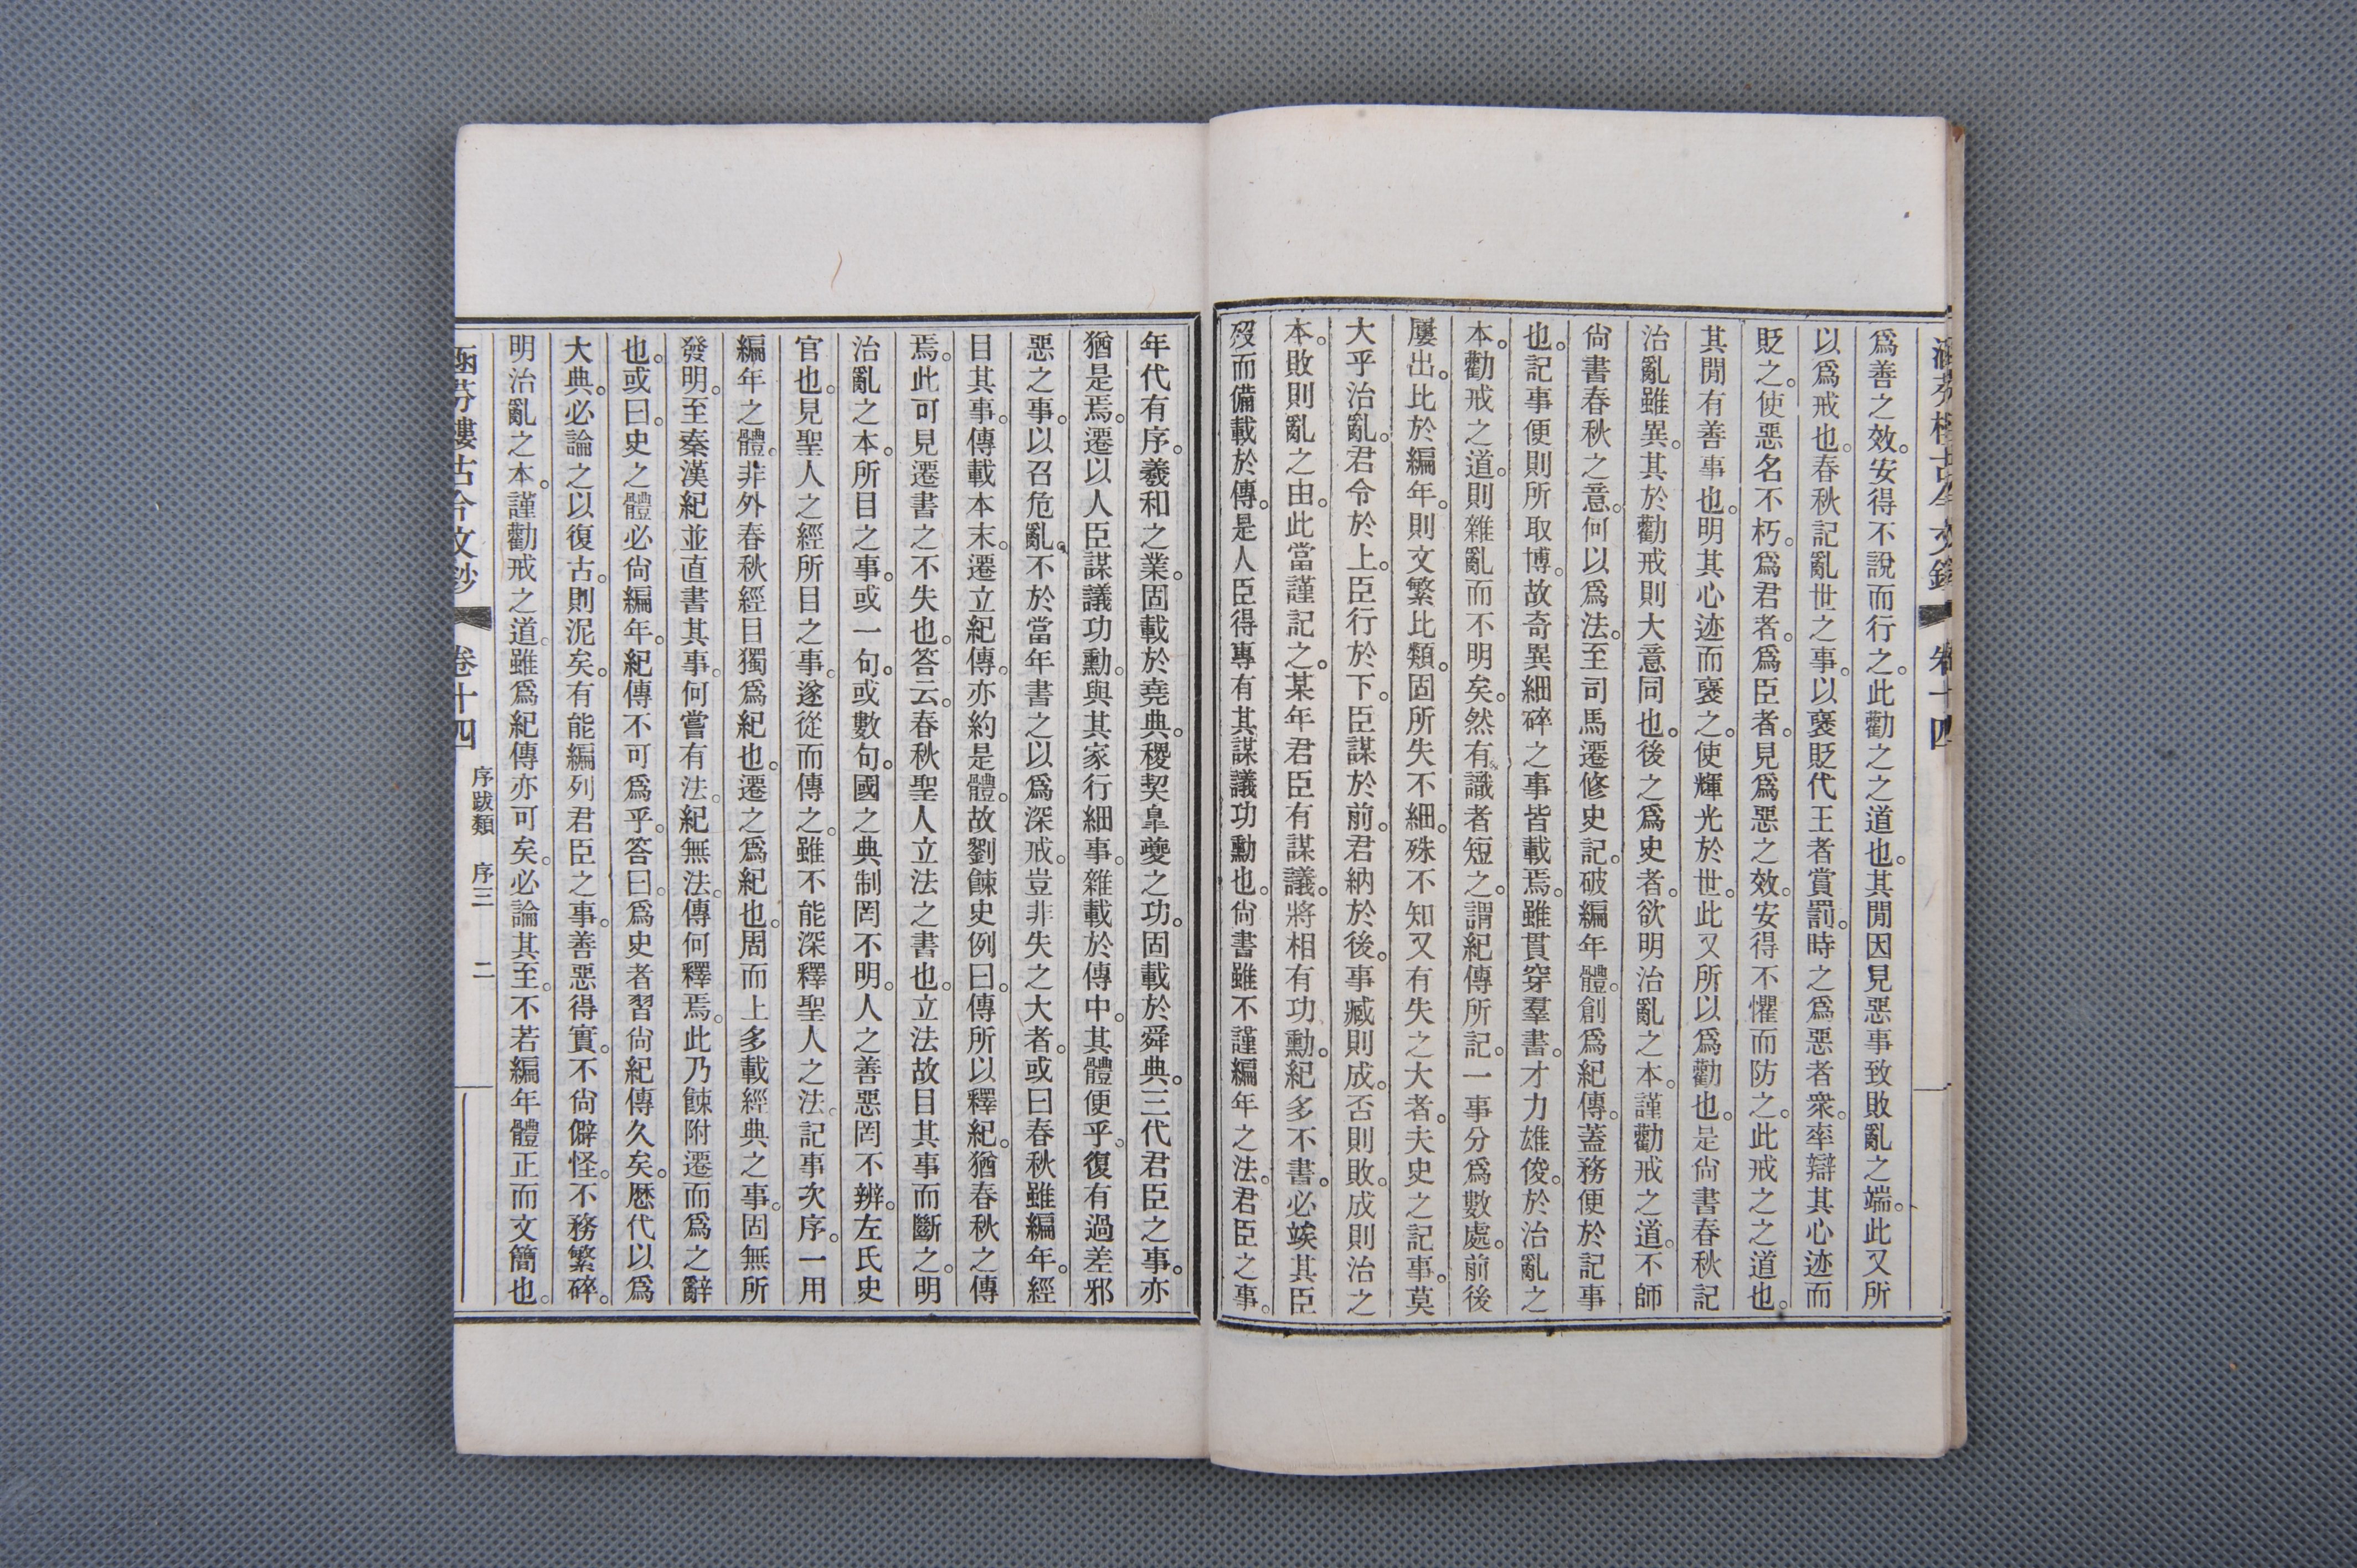 涵芬樓古今文鈔 卷十四
爲善之效。安得不說而行之。此勸之之道也。其閒因見惡事致敗亂之端。此又所
以爲戒也。春秋記亂世之事。以襃貶代王者賞罰。時之爲惡者衆。率辯其心迹而
貶之。使惡名不朽。爲君者。爲臣者。見爲惡之效。安得不懼而防之。此戒之之道也。
其閒有善事也。明其心迹而襃之。使輝光於世。此又所以爲勸也。是尙書春秋記
治亂雖異。其於勸戒則大意同也。後之爲史者。欲明治亂之本。謹勸戒之道。不師
尙書春秋之意。何以爲法。至司馬遷修史記。破編年體。創爲紀傳。蓋務便於記事
也。記事便則所取博。故奇異細碎之事皆載焉。雖貫穿羣書。才力雄俊。於治亂之
本。勸戒之道。則雜亂而不明矣。然有識者短之。謂紀傳所記。一事分爲數處。前後
屢出。比於編年。則文繁比類。固所失不細。殊不知又有失之大者。夫史之記事。莫
大乎治亂。君令於上。臣行於下。臣謀於前。君納於後。事臧則成。否則敗。成則治之
本。敗則亂之由。此當謹記之。某年君臣有謀議。將相有功勳。紀多不書。必竢其臣
歿而備載於傳。是人臣得專有其謀議功勳也。尙書雖不謹編年之法。君臣之事。
年代有序。羲和之業。固載於堯典。稷契臯夔之功。固載於舜典。三代君臣之事。亦
猶是焉。遷以人臣謀議功勳。與其家行細事。雜載於傳中。其體便乎。復有過差邪
惡之事。以召危亂。不於當年書之以爲深戒。豈非失之大者。或曰春秋雖編年。經
目其事。傳載本末。遷立紀傳。亦約是體。故劉餗史例曰。傳所以釋紀。猶春秋之傳
焉。此可見遷書之不失也。答云。春秋聖人立法之書也。立法故目其事而斷之。明
治亂之本。所目之事。或一句。或數句。國之典制罔不明。人之善惡罔不辨。左氏史
官也。見聖人之經所目之事。遂從而傳之。雖不能深釋聖人之法。記事次序。一用
編年之體。非外春秋經目獨爲紀也。遷之爲紀也。周而上多載經典之事。固無所
發明。至秦漢紀並直書其事。何嘗有法。紀無法。傳何釋焉。此乃餗附遷而爲之辭
也。或曰。史之體必尙編年。紀傳不可爲乎。答曰。爲史者習尙紀傳久矣。歷代以爲
大典。必論之以復古。則泥矣。有能編列君臣之事。善惡得實。不尙僻怪。不務繁碎。
明治亂之本。謹勸戒之道。雖爲紀傳亦可矣。必論其至。不若編年體正而文簡也。
涵芬樓古今文鈔 卷十四 序跋類 序三 二